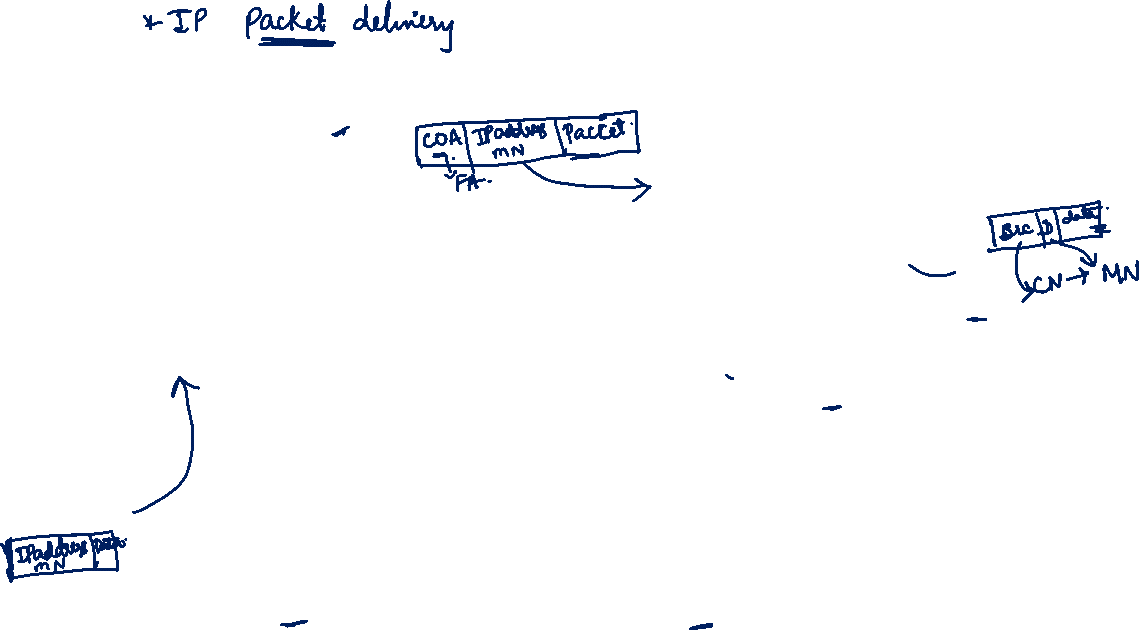 * IP Packet delivery
COA IPaddress Packet
MN
FA
Src D data
CN → MN
IPaddress Data
MN